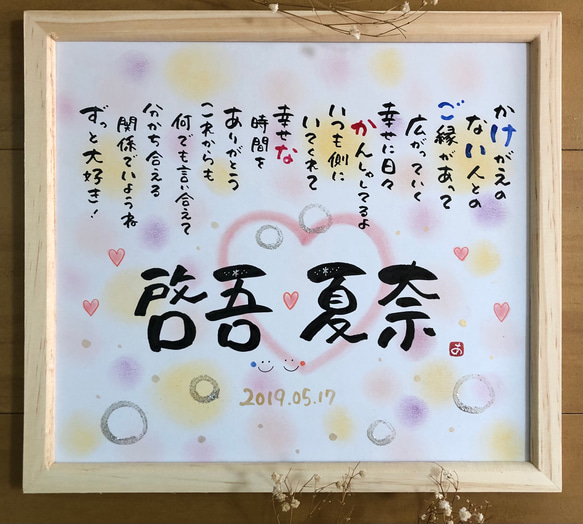 かけがえの
ない人との
ご縁があって
広がっていく
幸せに日々
かんしゃしてるよ
いつも側に
いてくれて
幸せな
時間を
ありがとう
これからも
何でも言い合えて
分かち合える
関係でいようね
ずっと大好き！
啓吾 夏奈
あ
2019.05.17